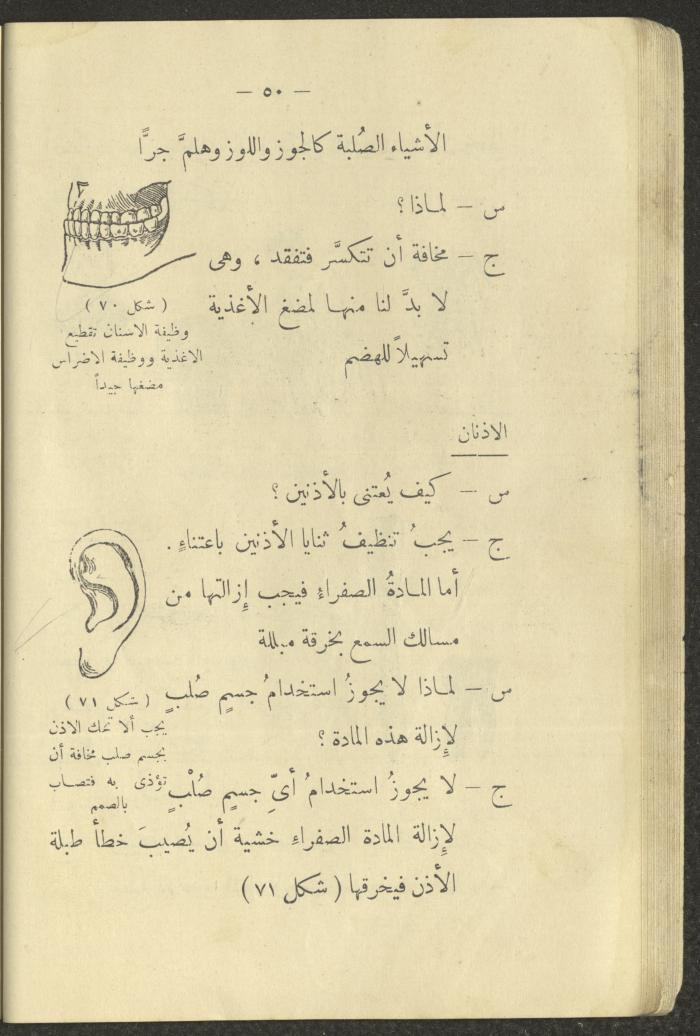 — ٥٠ —
الأشياء الصُلبة كالجوز واللوز وهلمَّ جرًّا
س — لماذا ؟
ج — مخافة أن تتكسَّر فتفقد ، وهى
لا بدَّ لنا منها لمضغ الأغذية
تسهيلاً للهضم
( شكل ٧٠ )
وظيفة الاسنان تقطيع
الاغذية ووظيفة الاضراس
مضغها جيداً
الاذنان
س — كيف يُعتنى بالأذنين ؟
ج — يجبُ تنظيفُ ثنايا الأذنين باعتناءٍ .
أما المادةُ الصفراء فيجب إِزالتها من
مسالك السمع بخرقة مبللة
س — لماذا لا يجوزُ استخدامُ جسمٍ صُلبٍ
لإِزالة هذه المادة ؟
( شكل ٧١ )
يجب ألا تحك الاذن
بجسم صلب مخافة أن
تؤذى به فتصاب
بالصمم
ج — لا يجوزُ استخدامُ أىِّ جسمٍ صُلْبٍ
لإِزالة المادة الصفراءِ خشية أن يُصيبَ خطأً طبلة
الأذن فيخرقها ( شكل ٧١ )